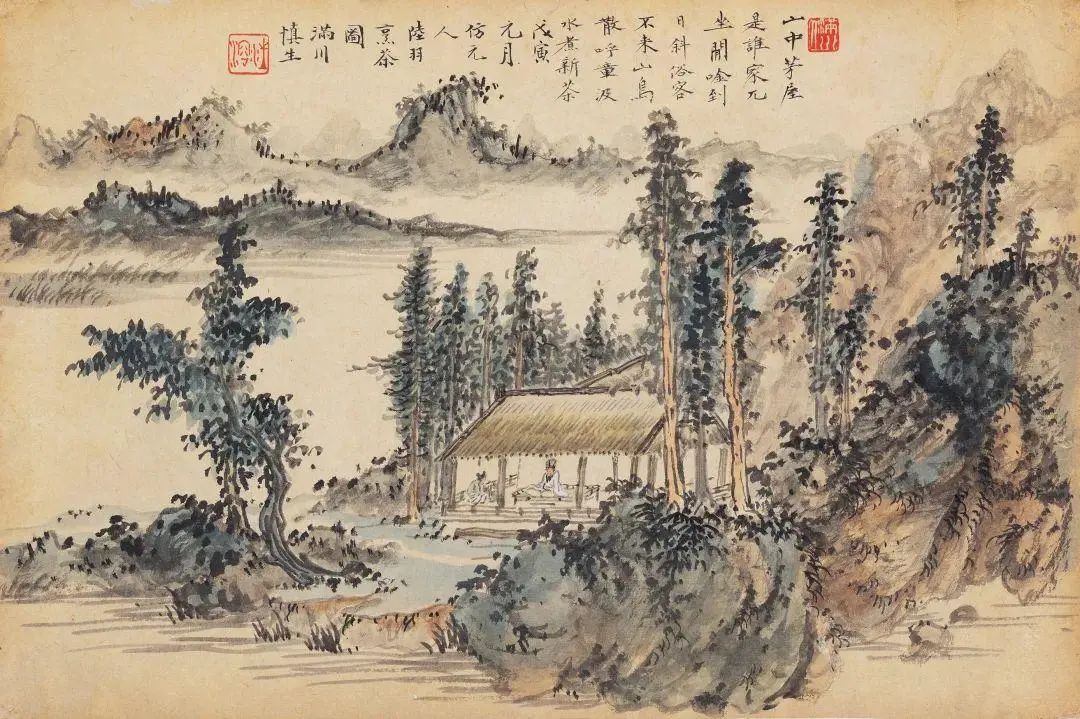 山中茅屋
是誰家兀
坐閒唫到
日斜俗客
不来山鳥
散呼童汲
水煮新茶
戊寅
元月
仿元
人
陸羽
烹茶
圖
滿川
慎生